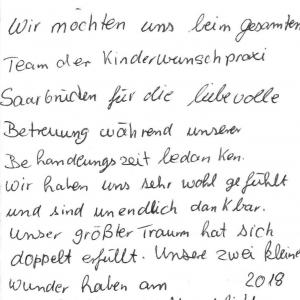 Wir möchten uns beim gesamten
Team der Kinderwunschpraxi
Saarbrücken für die liebevolle
Betreuung während unserer
Behandlungszeit bedanken.
Wir haben uns sehr wohl gefühlt
und sind unendlich dankbar.
Unser größter Traum hat sich
doppelt erfüllt. Unsere zwei kleine
Wunder haben am 2018